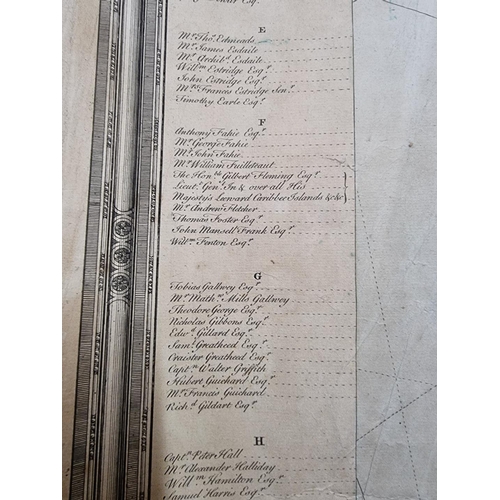 E
Mr. Thos. Edmeads
Mr. James Esdaile
Mr. Archibd. Esdaile
Willm. Estridge Esqr.
John Estridge Esqr.
Mrs. Frances Estridge Senr.
Timothy Earle Esqr.
F
Anthony Fahie Esqr.
Mr. George Fahie
Mr. John Fahie
Mr. William Fuilleteaut
The Honble. Gilbert Fleming Esqr.
Lieut. Genl. In & over all His
Majesty's Leeward Caribbee Islands &c &c
Mr. Andrew Fletcher
Thomas Foster Esqr.
John Mansell Frank Esqr.
Willm. Fenton Esqr.
G
Tobias Gallwey Esqr.
Mr. Mathw. Mills Gallwey
Theodore George Esqr.
Nicholas Gibbons Esqr.
Edwd. Gillard Esqr.
Saml. Greatheed Esqr.
Craister Greatheed Esqr.
Captn. Walter Griffith
Hubert Guichard Esqr.
Mr. Francis Guichard
Richd. Gildart Esqr.
H
Captn. Peter Hall
Mr. Alexander Halliday
Willm. Hamilton Esqr.
Samuel Harris Esqr.